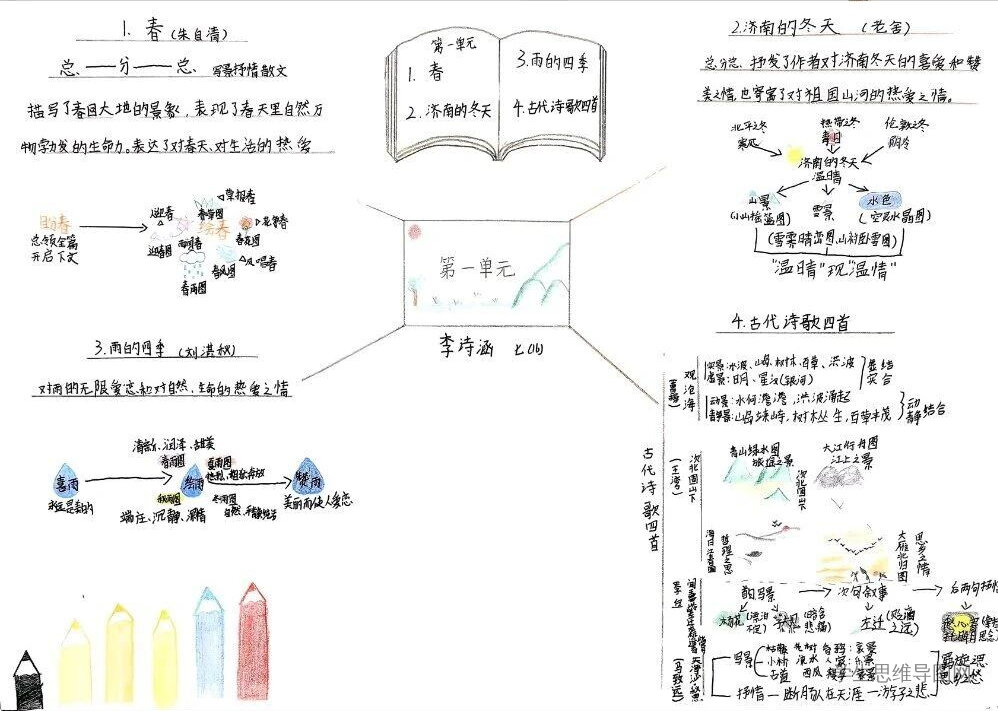 第一单元
1. 春
2. 济南的冬天
3. 雨的四季
4. 古代诗歌四首
第一单元
李诗涵 七(16)
1. 春 (朱自清)
总——分——总 写景抒情散文
描写了春回大地的景象，表现了春天里自然万
物勃发的生命力。表达了对春天、对生活的热爱
盼春
总领全篇
开启下文
绘春
迎春
春草图
春花图
春风图
春雨图
迎春图
2. 济南的冬天 (老舍)
总分总、抒发了作者对济南冬天的喜爱和赞
美之情,也寄寓了对祖国山河的热爱之情。
北平之冬
寒风
热带之冬
毒日
伦敦之冬
阴冷
济南的冬天
温晴
山景
(小山摇篮图)
雪景
水色
(空灵水晶图)
(雪霁晴峦图、山村卧雪图)
"温晴"现"温情"
3. 雨的四季 (刘湛秋)
对雨的无限爱恋和对自然、生命的热爱之情
喜雨
清新、润泽、甜美
春雨图
夏雨图
绘雨
秋雨图
端庄、沉静、深情
冬雨图
自然、平静
赞雨
美丽而使人爱恋
4. 古代诗歌四首
古代诗歌四首
观沧海
(曹操)
实景:水波、山岛、树木、百草、洪波
虚景:日月、星汉(银河)
虚实结合
动景:水何澹澹,洪波涌起
静景:山岛竦峙,树木丛生,百草丰茂
动静结合
次北固山下
(王湾)
青山绿水图
旅途之景
大江行舟图
江上之景
次北固山下
哲理之思
大雁北归图
思乡之情
李白
首句写景
次句叙事
后两句抒情
杨花
左迁
(马致远)
写景
枯藤 老树 昏鸦:哀景
小桥 流水 人家:乐景
古道 西风 瘦马:哀景
抒情——断肠人在天涯——游子之悲
思乡之愁
思维导图网